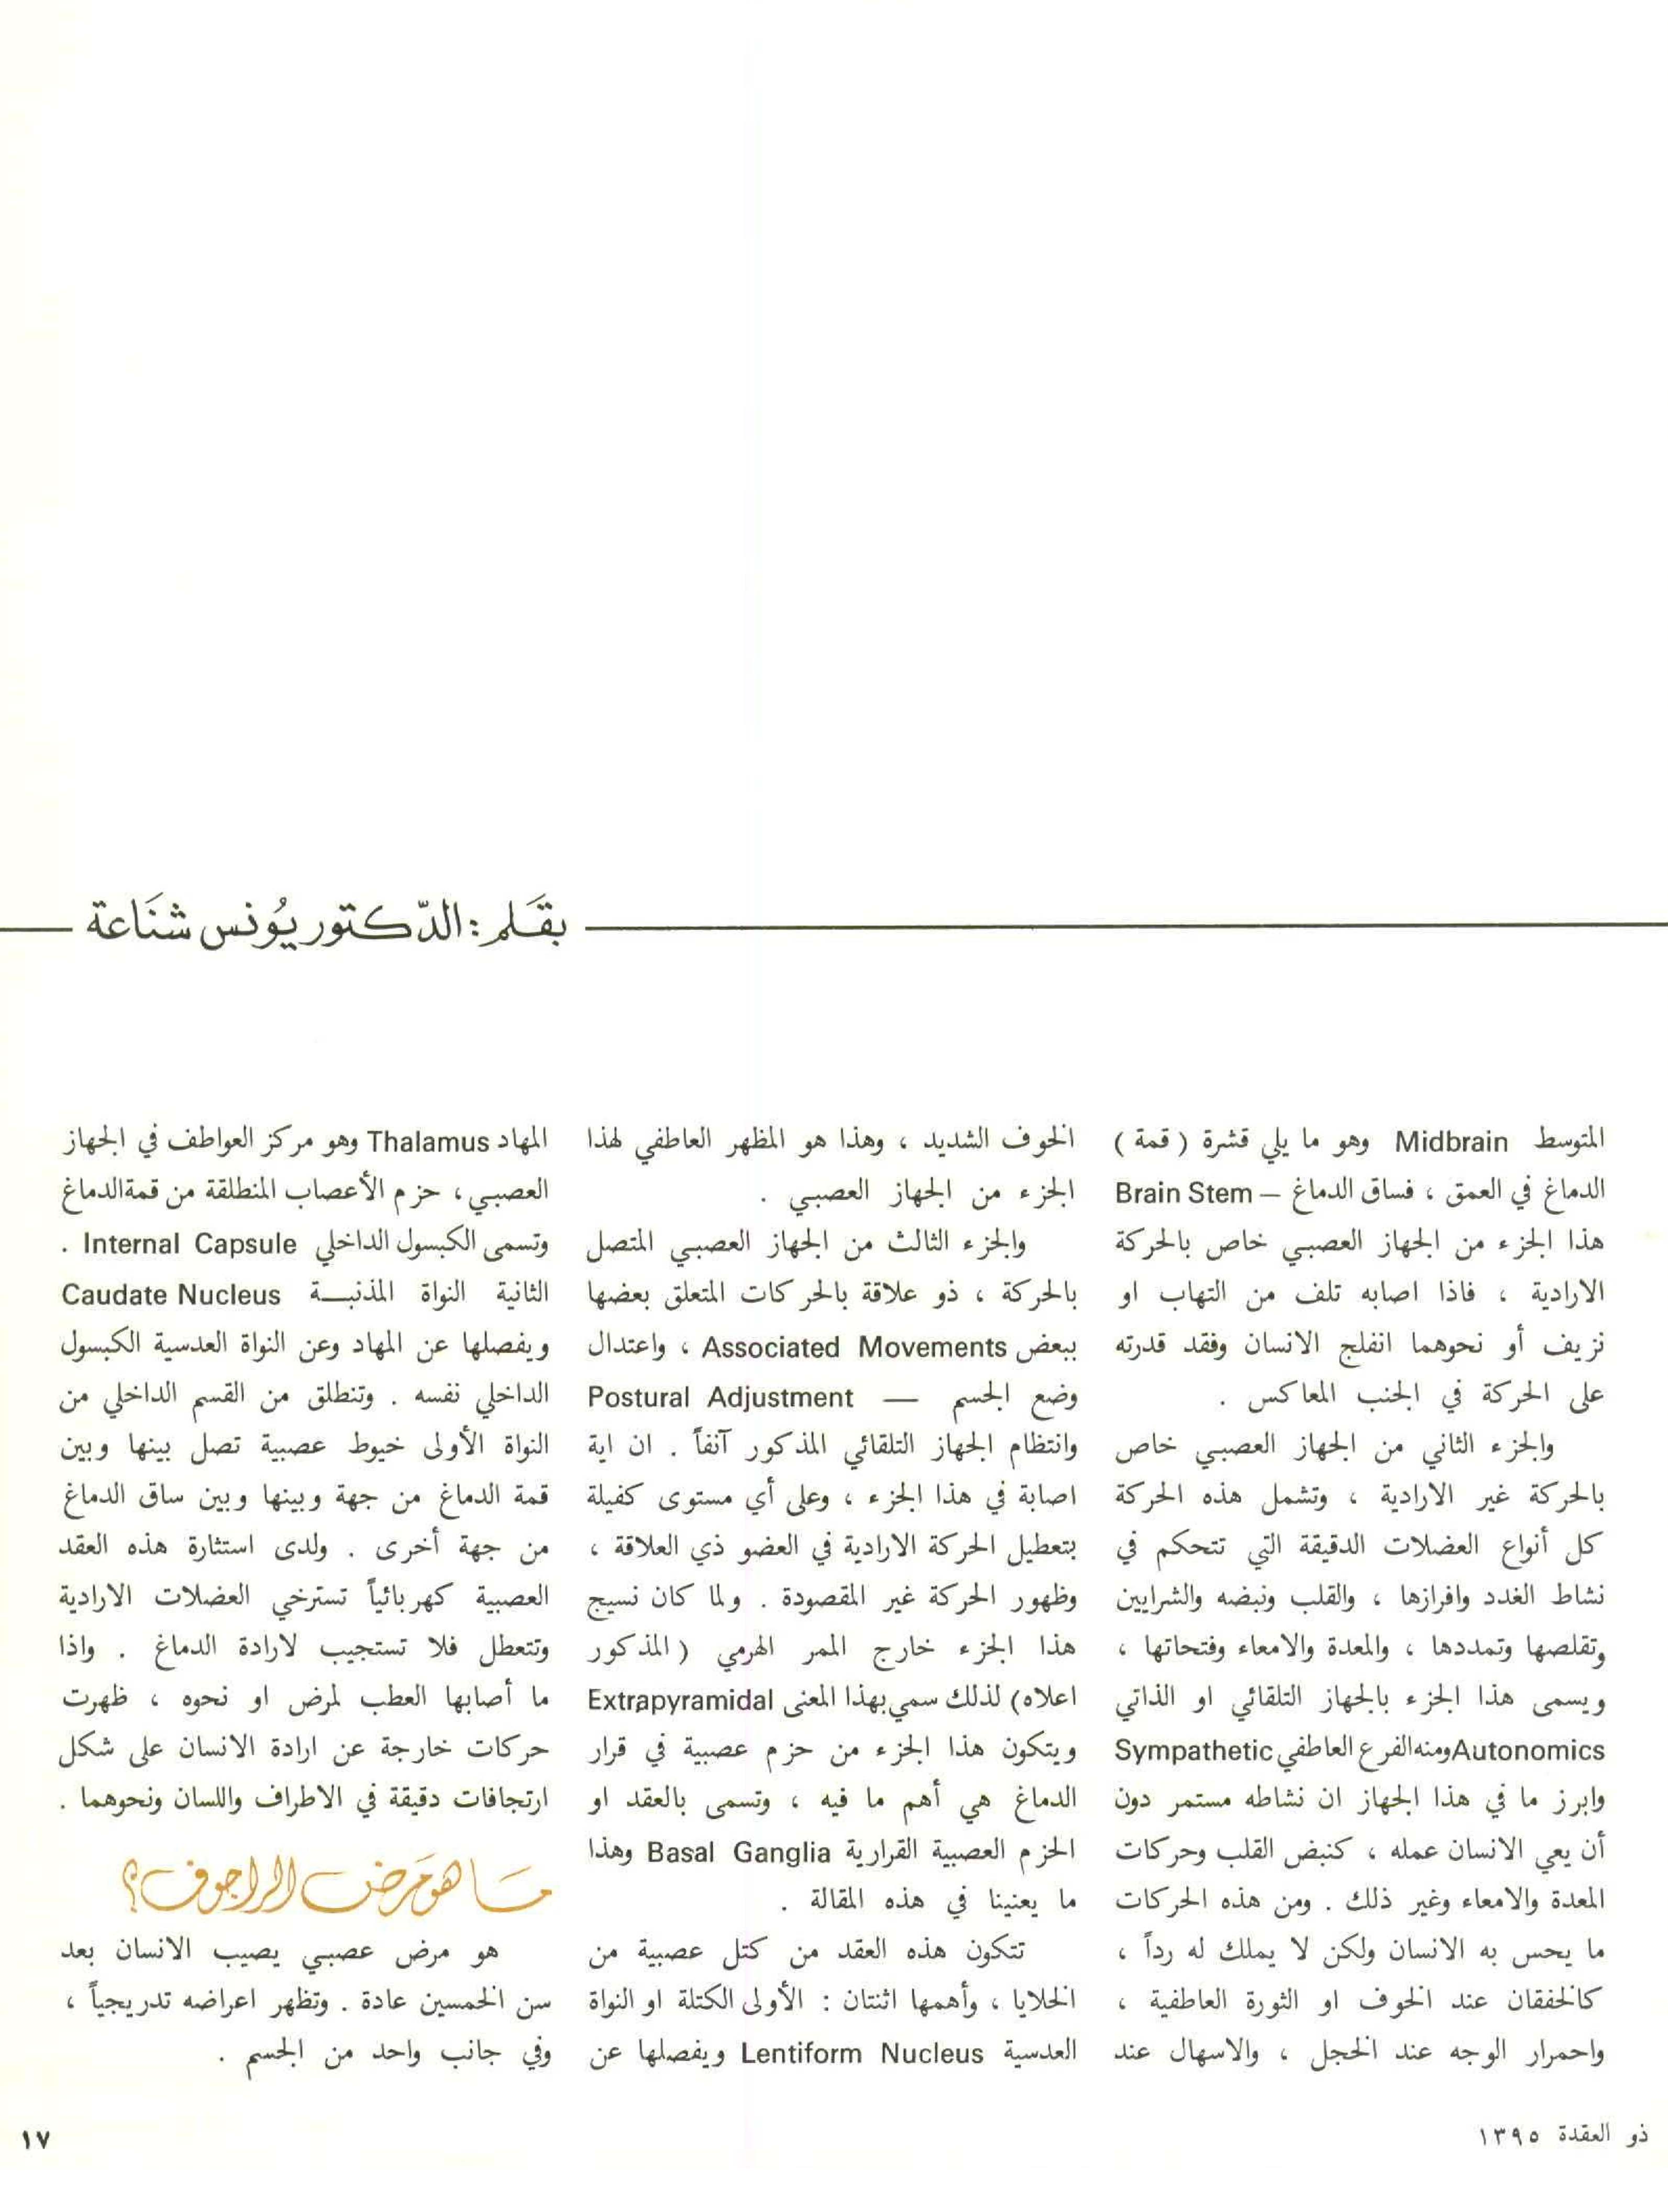 بقَلم : الدّكتور يُونس شنَاعة
المتوسط Midbrain وهو ما يلي قشرة ( قمة )
الدماغ في العمق ، فساق الدماغ – Brain Stem
هذا الجزء من الجهاز العصبي خاص بالحركة
الارادية ، فاذا اصابه تلف من التهاب او
نزيف أو نحوهما انفلج الانسان وفقد قدرته
على الحركة في الجنب المعاكس .
والجزء الثاني من الجهاز العصبي خاص
بالحركة غير الارادية ، وتشمل هذه الحركة
كل أنواع العضلات الدقيقة التي تتحكم في
نشاط الغدد وافرازها ، والقلب ونبضه والشرايين
وتقلصها وتمددها ، والمعدة والامعاء وفتحاتها ،
ويسمى هذا الجزء بالجهاز التلقائي او الذاتي
Autonomics ومنه الفرع العاطفي Sympathetic
وابرز ما في هذا الجهاز ان نشاطه مستمر دون
أن يعي الانسان عمله ، كنبض القلب وحركات
المعدة والامعاء وغير ذلك . ومن هذه الحركات
ما يحس به الانسان ولكن لا يملك له رداً ،
كالخفقان عند الخوف او الثورة العاطفية ،
واحمرار الوجه عند الخجل ، والاسهال عند
الخوف الشديد ، وهذا هو المظهر العاطفي لهذا
الجزء من الجهاز العصبي .
والجزء الثالث من الجهاز العصبي المتصل
بالحركة ، ذو علاقة بالحركات المتعلق بعضها
ببعض Associated Movements ، واعتدال
وضع الجسم — Postural Adjustment
وانتظام الجهاز التلقائي المذكور آنفاً . ان اية
اصابة في هذا الجزء ، وعلى أي مستوى كفيلة
بتعطيل الحركة الارادية في العضو ذي العلاقة ،
وظهور الحركة غير المقصودة . ولما كان نسيج
هذا الجزء خارج الممر الهرمي ( المذكور
اعلاه ) لذلك سمي بهذا المعنى Extrapyramidal
ويتكون هذا الجزء من حزم عصبية في قرار
الدماغ هي أهم ما فيه ، وتسمى بالعقد او
الحزم العصبية القرارية Basal Ganglia وهذا
ما يعنينا في هذه المقالة .
تتكون هذه العقد من كتل عصبية من
الخلايا ، وأهمها اثنتان : الأولى الكتلة او النواة
العدسية Lentiform Nucleus ويفصلها عن
المهاد Thalamus وهو مركز العواطف في الجهاز
العصبي ، حزم الأعصاب المنطلقة من قمة الدماغ
وتسمى الكبسول الداخلي Internal Capsule .
الثانية النواة المذنبـــة Caudate Nucleus
ويفصلها عن المهاد وعن النواة العدسية الكبسول
الداخلي نفسه . وتنطلق من القسم الداخلي من
النواة الأولى خيوط عصبية تصل بينها وبين
قمة الدماغ من جهة وبينها وبين ساق الدماغ
من جهة أخرى . ولدى استثارة هذه العقد
العصبية كهربائياً تسترخي العضلات الارادية
وتتعطل فلا تستجيب لارادة الدماغ . واذا
ما أصابها العطب لمرض او نحوه ، ظهرت
حركات خارجة عن ارادة الانسان على شكل
ارتجافات دقيقة في الاطراف واللسان ونحوهما .
مَا هو مَرض الراجوف ؟
هو مرض عصبي يصيب الانسان بعد
سن الخمسين عادة . وتظهر اعراضه تدريجياً ،
وفي جانب واحد من الجسم .
ذو العقدة ١٣٩٥
١٧